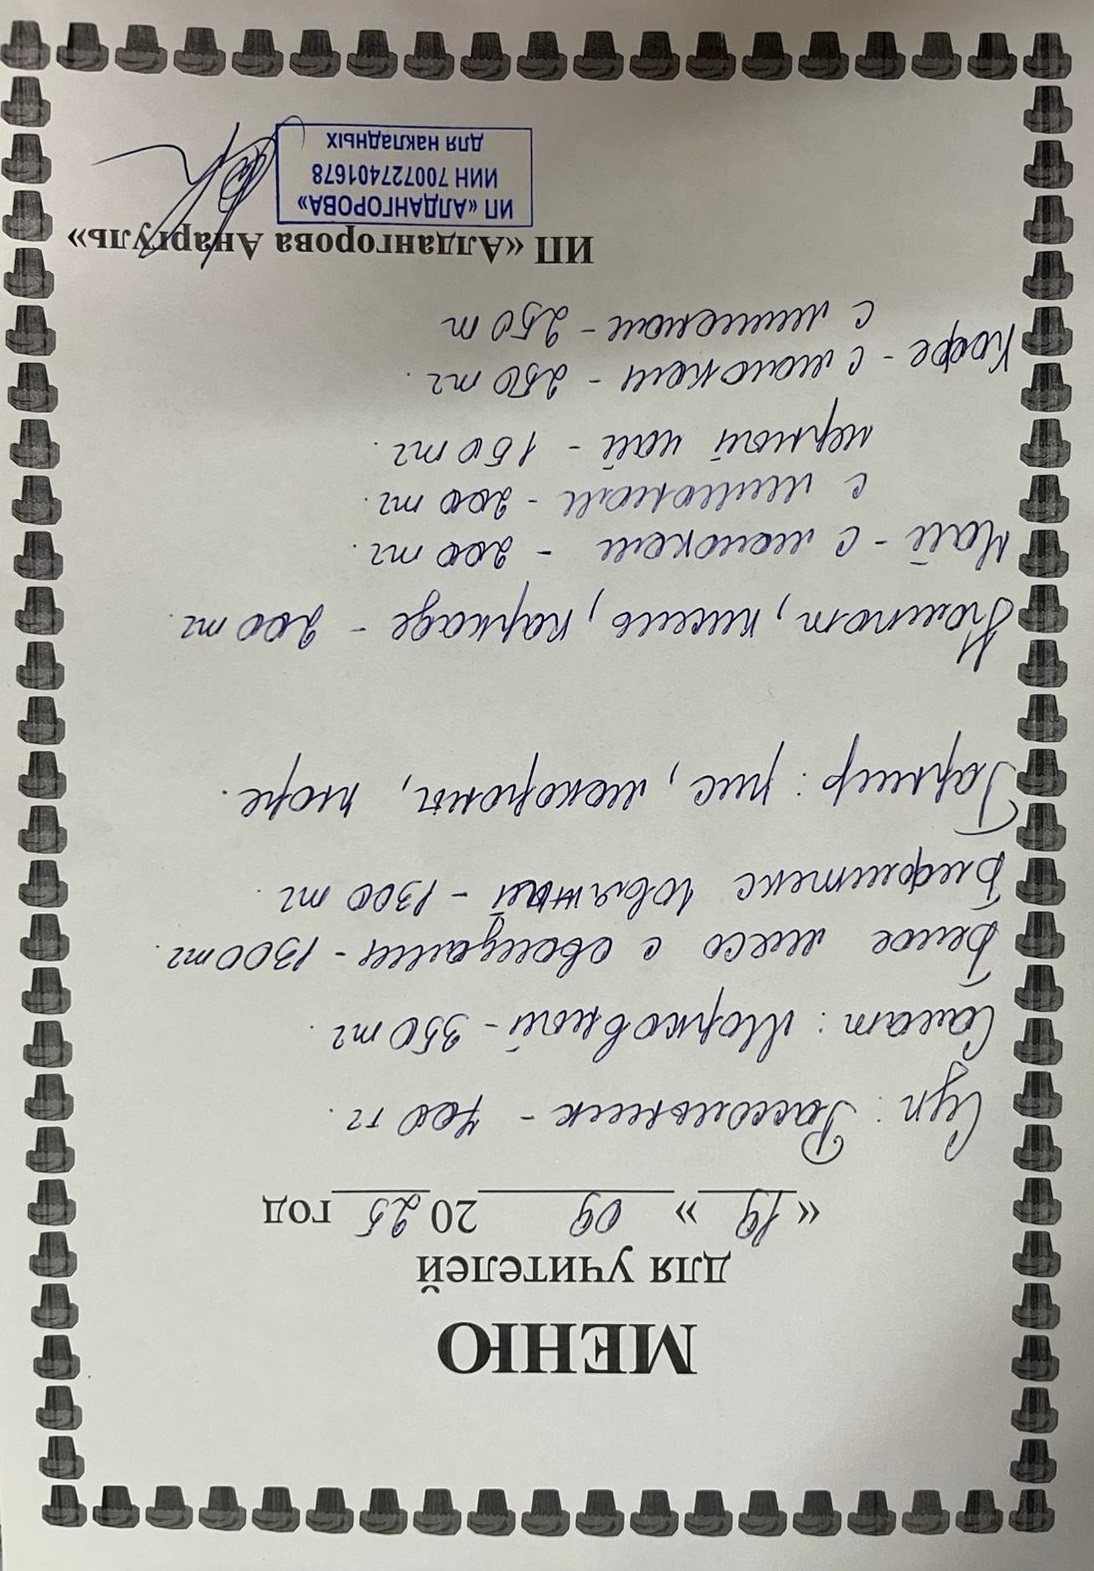 МЕНЮ
для учителей
«19» 09 2025 год
Суп: Рассольник - 700 тг.
Салат: Морковный - 350 тг.
Белое мясо с овощами - 1300 тг.
Бифштекс говяжый - 1300 тг.
Гарнир: рис, макароны, пюре.
Компот, кисель, каркаде - 200 тг.
Чай - с молоком - 200 тг.
с лимоном - 200 тг.
черный чай - 150 тг.
Кофе - с молоком - 250 тг.
с лимоном - 250 т
ИП «Алдангорова Анаргуль»
ИП «АЛДАНГОРОВА»
ИИН 700727401678
для накладных